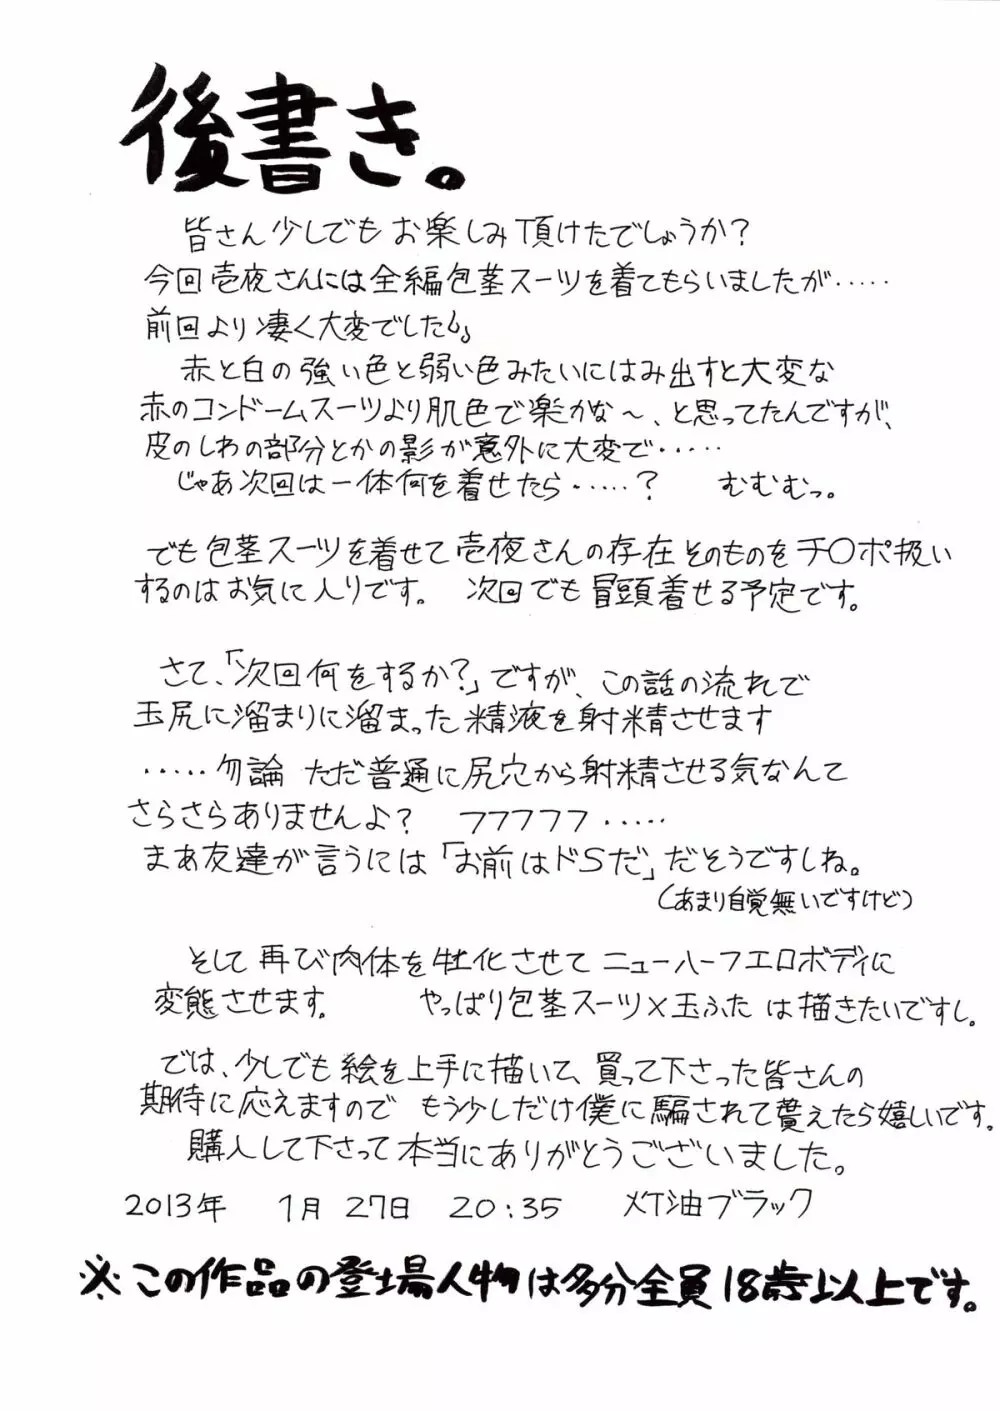 後書き。
皆さん少しでもお楽しみ頂けたでしょうか?
今回壱夜さんには全編包茎スーツを着てもらいましたが・・・・・
前回より凄く大変でした
赤と白の強い色と弱い色みたいにはみ出すと大変な
赤のコンドームスーツより肌色で楽かな~、と思ってたんですが、
皮のしわの部分とかの影が意外に大変で・・・・・
じゃあ次回は一体何を着せたら・・・・・? むむむっ。
でも包茎スーツを着せて壱夜さんの存在そのものをチ〇ポ扱い
するのはお気に入りです。 次回でも冒頭着せる予定です。
さて、「次回何をするか?」ですが、この話の流れで
玉尻に溜まりに溜まった精液を射精させます
・・・・・勿論 ただ普通に尻穴から射精させる気なんて
さらさらありませんよ? フフフフフ・・・・・
まあ友達が言うには「お前はドSだ」だそうですしね。
(あまり自覚無いですけど)
そして再び肉体を牡化させてニューハーフエロボディに
変態させます。 やっぱり包茎スーツ×玉ふたは描きたいですし。
では、少しでも絵を上手に描いて、買って下さった皆さんの
期待に応えますので もう少しだけ僕に騙されて貰えたら嬉しいです。
購入して下さって本当にありがとうございました。
2013年 1月27日 20:35 油ブラック
※この作品の登場人物は多分全員18歳以上です。